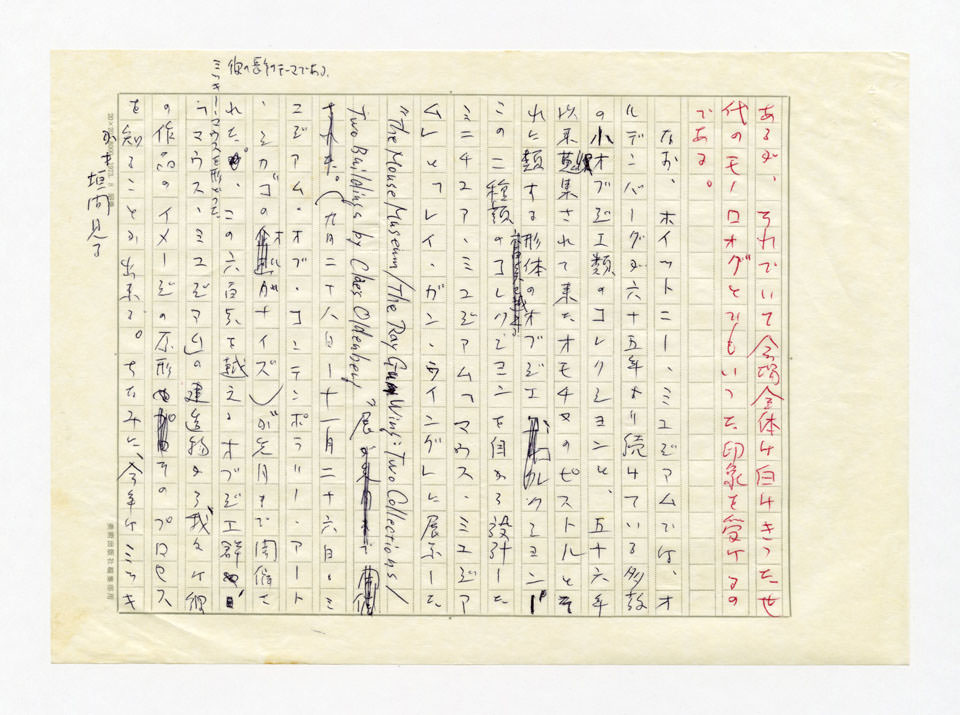 あるが、それでいて会場全体は白けきった世
代のモノロオグとでもいった印象を受けるの
である。
なお、ホイットニー・ミユゼアムでは、オ
ルデンバーグが六十五年より続けている多数
の小オブジエ類のコレクシヨンと、五十六年
以来蒐集されて来たオモチヤのピストルとそ
れに類する形体のオブジエ コレクシヨン
この二種類のコレクシヨンを自から設計した
ミニチユア・ミユゼアム「マウス・ミユゼア
ム」と「レイ・ガン・ウイング」に展示した
"The Mouse Museum/The Ray Gun Wing: Two Collections/
Two Buildings by Claes Oldenburg" 展
(九月二十八日ー十一月二十六日。ミ
ユゼアム・オブ・コンテンポラリー・アート
、シカゴのオルガナイズ)が先月まで開催さ
れた。この六百点を越えるオブジエ群
彼の長年のテーマである
ミッキー・マウスを形どった
「マウス・ミユゼアム」の建造物から我々は彼
の作品のイメージの原形やそのプロセス
を知ることが出来る。ちなみに、今年はミッキ
かき垣間見る
20×
東京出版右端事務所